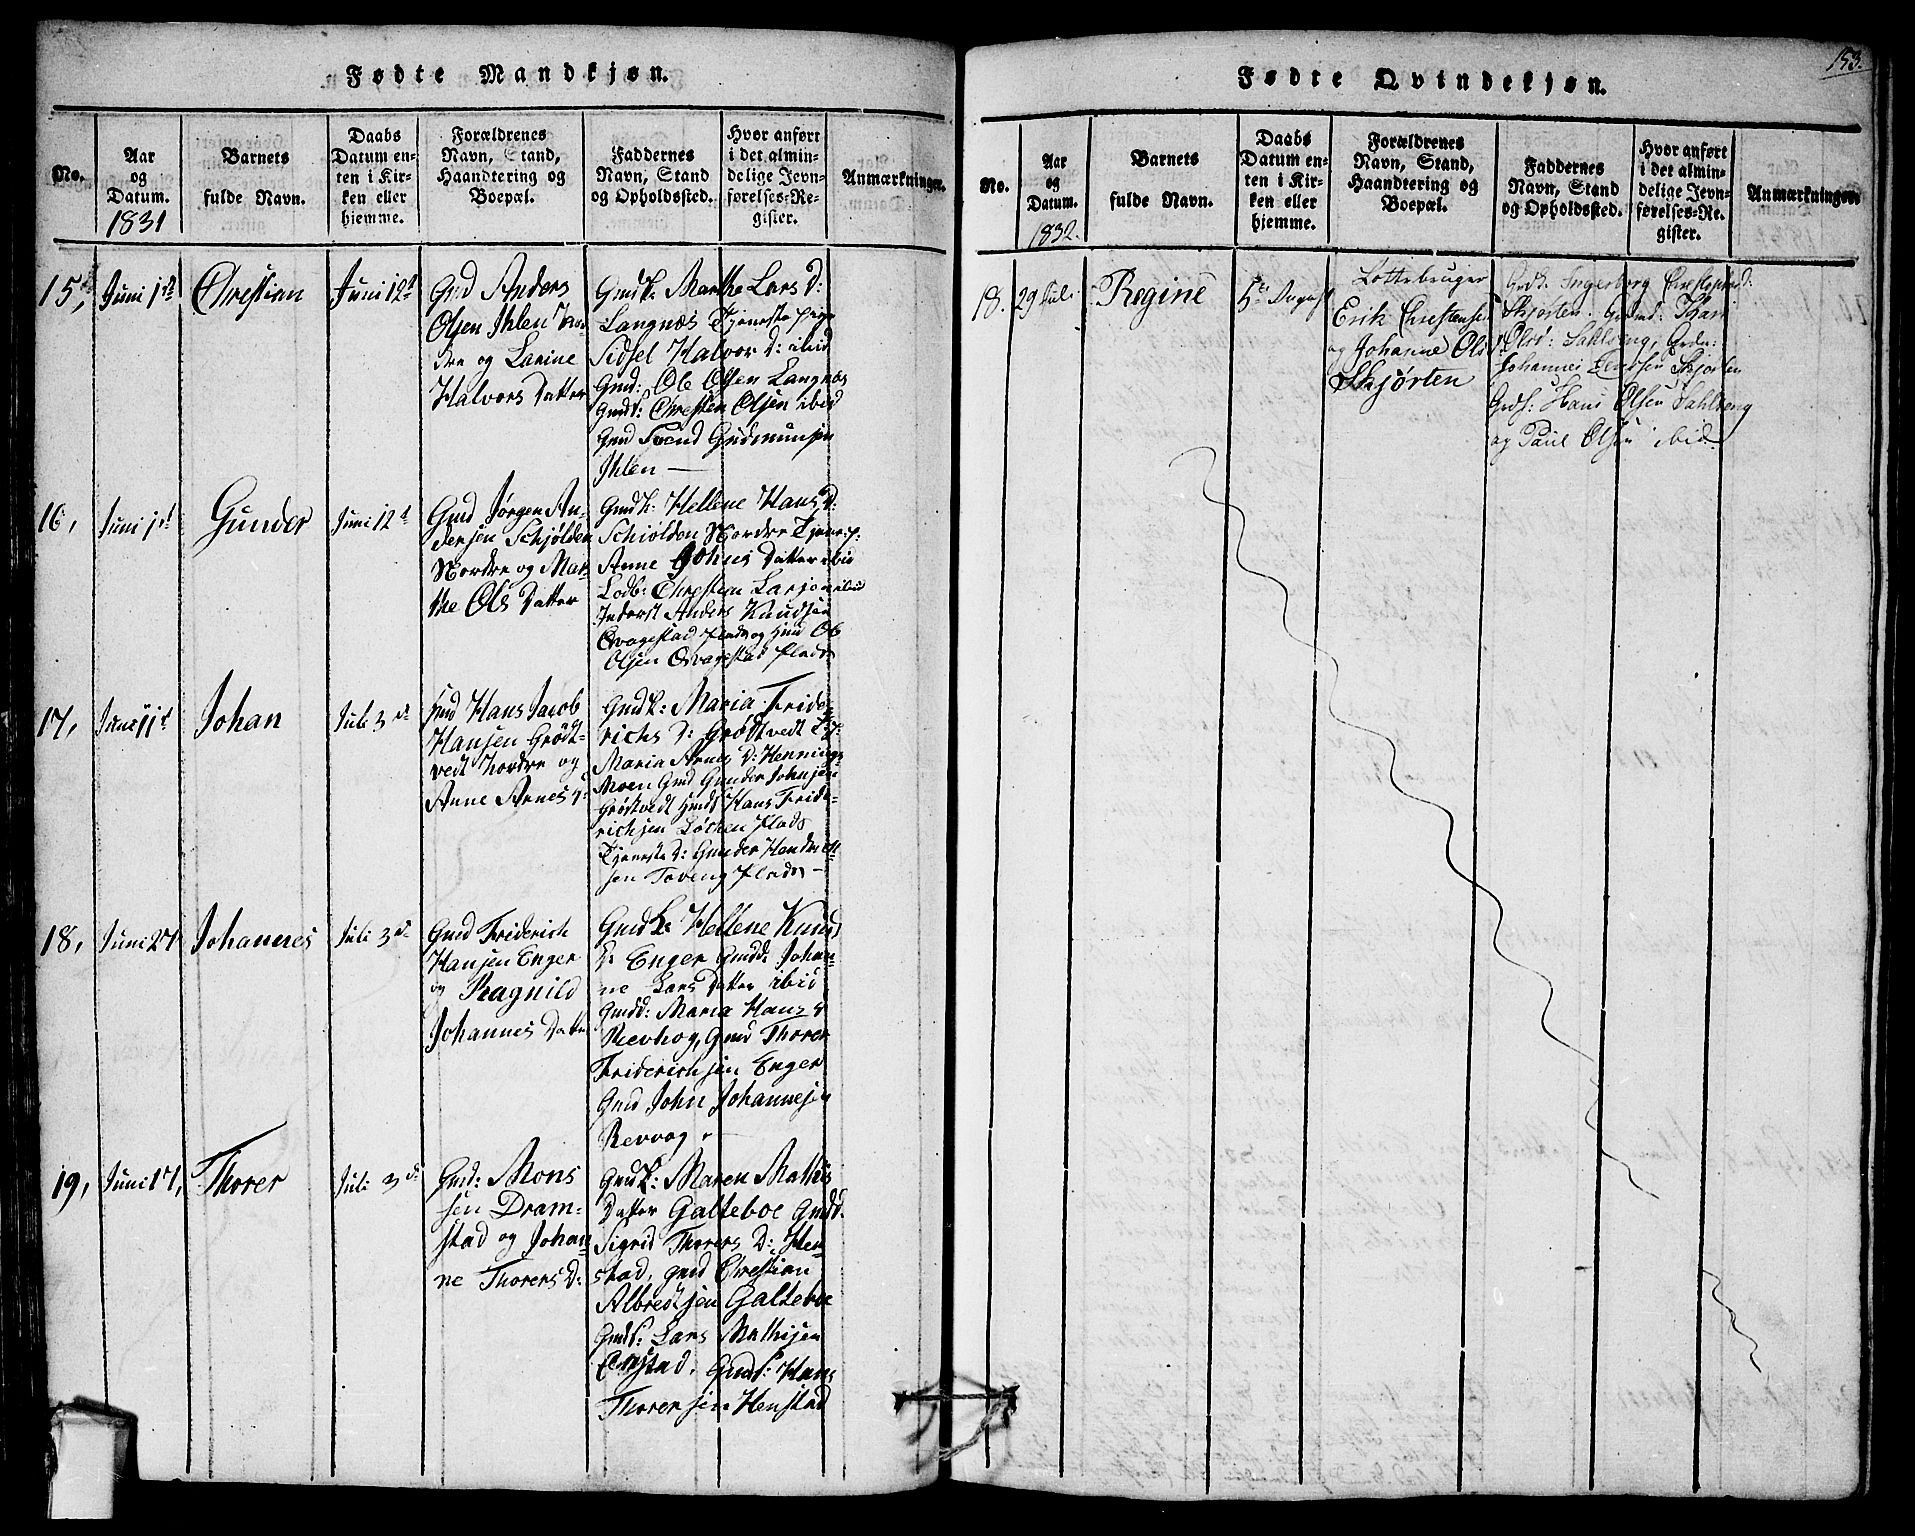 Fødte Mandkjøn.
No.
Aar
og
Datum.
1831
Barnets
fulde Navn.
Daabs
Datum en-
ten i Kir-
ken eller
hjemme.
Forældrenes
Navn, Stand,
Haandtering og
Boepæl.
Faddernes
Navn, Stand
og Opholdssted.
Hvor anført
i det almin-
delige Jevn-
førelses-Re-
gister.
Anmærkninger.
15,
Juni 1st
Christian
Juni 12t
Gmd Anders
Olsen Ihlen Nor-
dre og Larine
Halvors Datter
Gmdk: Marthe Lars D:
Langnæs Tjeneste pige
Sidsel Halvor D: ibid
Gmd: Ole Olsen Langnæs
Gmds: Christen Olsen ibid
Gmd Svend Gudmunsen
Ihlen —
16,
Juni 1st
Gunder
Juni 12t
Gmd Jørgen An-
dersen Schjølden
Nordre og Mar-
the Ols Datter
Gmdk: Hellene Hans D:
Schiolden Nordre Tjene p:
Anne Johns Datter ibid
Lodb: Christian Larsen ibid
Inderst Anders Knudsen
Olsen
17,
Juni 11t
Johan
Juli 3d
Gmd Hans Jacob
Hansen Grødt-
vedt Nordre og
Anne Arnes D:
Gmdk: Maria Fride-
richs D: Grødtvedt
Maria Arnes D: Hennings
Moen Gmd Gunder Johnsen
Grøstvedt Hans Fride-
richsen Løcken Plads
Tjeneste D: Gunder Hendrich
sen Toveng Plads —
18,
Juni 27
Johannes
Juli 3d
Gmd Friderich
Hansen Enger
og Ragnild
Johannes Datter
Gmdk: Hellene Knud
D: Enger Gmdd: Johan-
ne Lars Datter ibid
Gmdd: Maria Hans D
Revhog, Gmd Thorer
Friderichsen Enger
Gmd John Johannesen
Revvog.
19,
Juni 17,
Thorer
Juli 3d
Gmd: Mons
sen Dram-
stad og Johan-
ne Thorers D:
Gmdk: Maren Mathis
Datter Galteboe Gmdd.
Sigrid Thorers D: Hen-
stad, Gmd Christian
Albredtsen Galteboe
Gmds: Lars Mathisen
Gmds: Hans
Thorersen Henstad
153.
Fødte Qvindekjøn.
No.
Aar
og
Datum.
1832.
Barnets
fulde Navn.
Daabs
Datum en-
ten i Kir-
ken eller
hjemme.
Forældrenes
Navn, Stand,
Haandtering og
Boepæl.
Faddernes
Navn, Stand
og Opholdssted.
Hvor anført
i det almin-
delige Jevn-
førelses-Re-
gister.
Anmærkninger.
18.
29 Juli
Regine
5te August
Lottebruger
Erik Christensen
og Johanne Olsd:
Skjørten
Grdk: Ingeborg Christophersd:
Skjørten. Kari
Olsd: Sahlberg,
Johannes Skjørten
Grds: Hans Olsen Sahlberg
og Paul Olsen ibid.